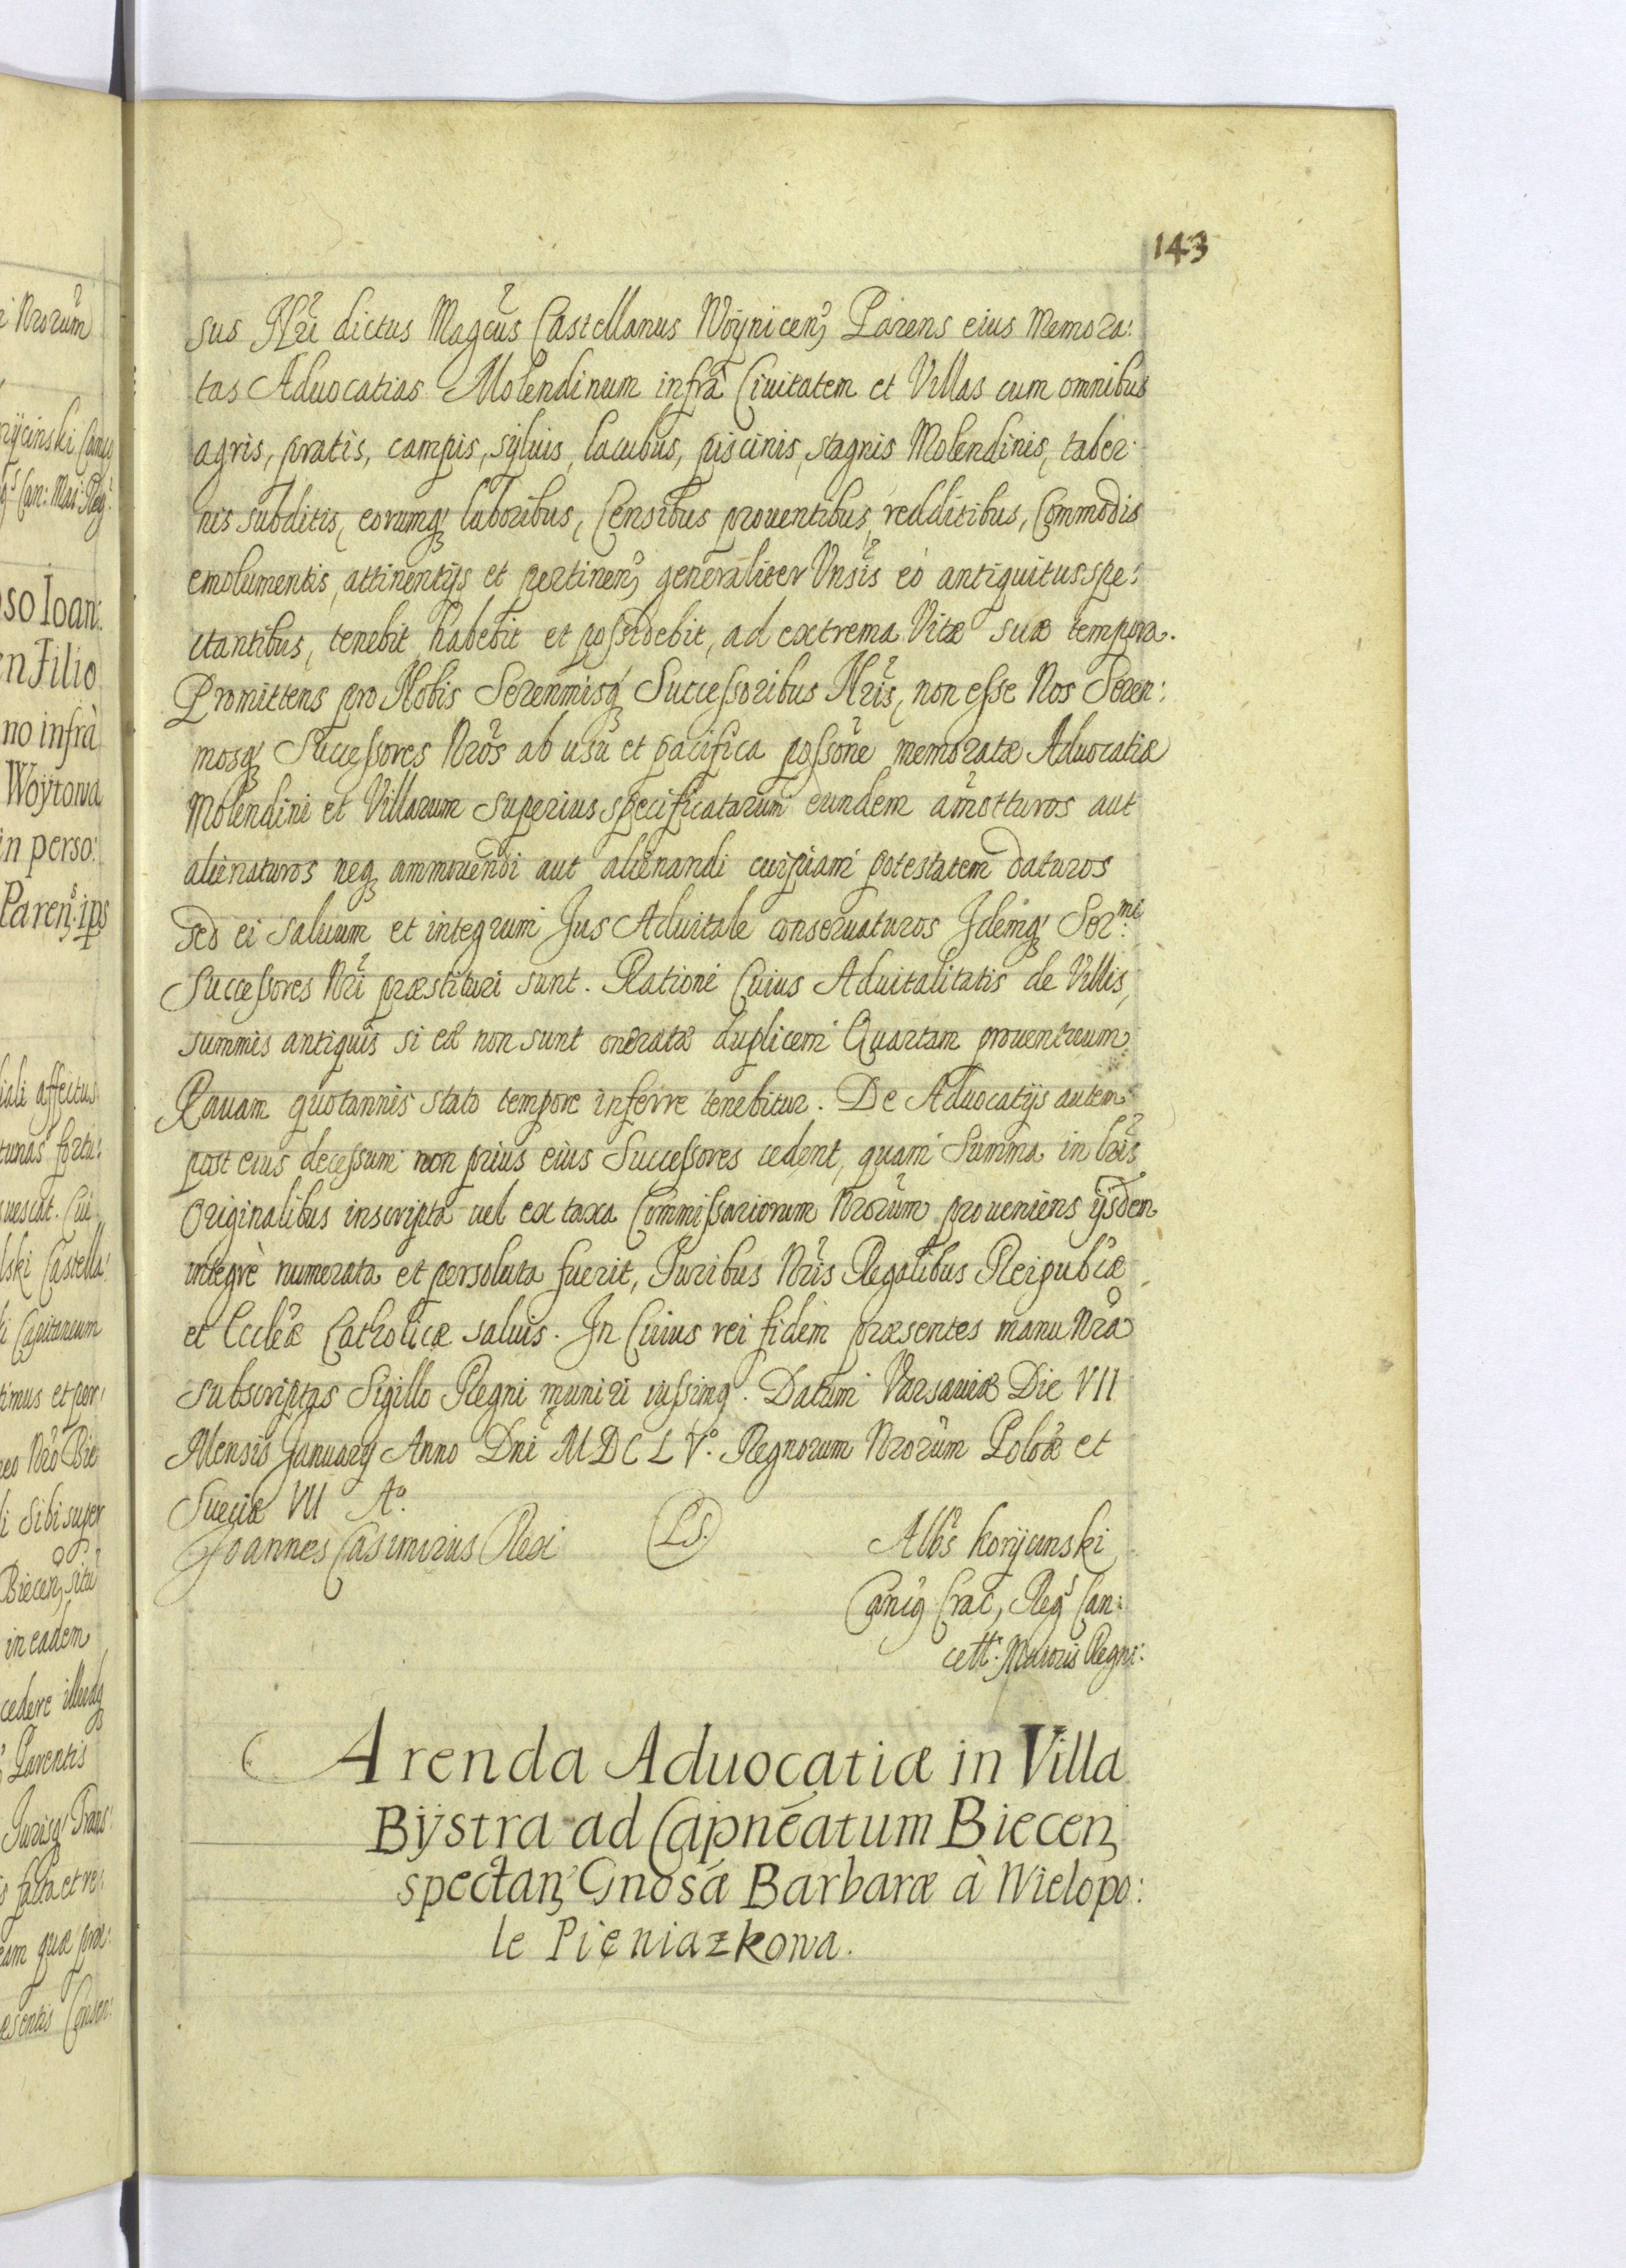 143
sus Nri dictus Magcus Castellanus Woynicen Parens eius Memora:
tas Aduocatias Molendinum infrà Ciuitatem et Villas cum omnibus
agris, pratis, campis, syluis, lacubus, piscinis, stagnis Molendinis, taber:
nis subditis, eorumq laboribus, Censibus prouentibus, redditibus, Commodis
emolumentis, attinentijs et pertinen generaliter Vnsis eò antiquitus spe:
ctantibus, tenebit habebit et possidebit, ad extrema Vitæ suæ tempora.
Promittens pro Nobis Serenmisq Successoribus Nris, non esse Nos Seren:
mosq Successores Nros ab usu et pacifica possone memoratæ Aduocatiæ
Molendini et Villarum superius specificatarum eundem amotturos aut
alienaturos neq ammouendi aut alienandi cuipiam potestatem daturos
sed ei saluum et integrum Jus Aduitale conseruaturos Idemq Ser.mi
Successores Nri præstituri sunt. Rationi Cuius Aduitalitatis de Villis,
summis antiquis si eæ non sunt oneratæ duplicem Quartam prouentuum
Rauam quotannis stato tempore inferre tenebitur. De Aduocatijs autem
post eius decessum non prius eius Successores cedent, quam Summa in Lris
Originalibus inscripta uel ex taxa Commissariorum Nrorum proueniens ijsdem
integrè numerata et persoluta fuerit, Iuribus Nris Regalibus Reipublcæ
et Eccleæ Catholicæ saluis. In Cuius rei fidem præsentes manu Nra
subscriptas Sigillo Regni muniri iussimq. Datum Varsauiæ Die VII
Mensis January Anno Dni MDCLV.o Regnorum Nrorum Polo͠æ et
Sueciæ VII Ao.
Joannes Casimirus Rex
L.S.
Albs Korycinski
Canig Crac, Reg Can:
cell: Maioris Regni:
Arenda Aduocatiæ in Villa
Bÿstra ad Capneatum Biecen
spectan Gnosæ Barbaræ à Wielopo:
le Pieniazkowa.